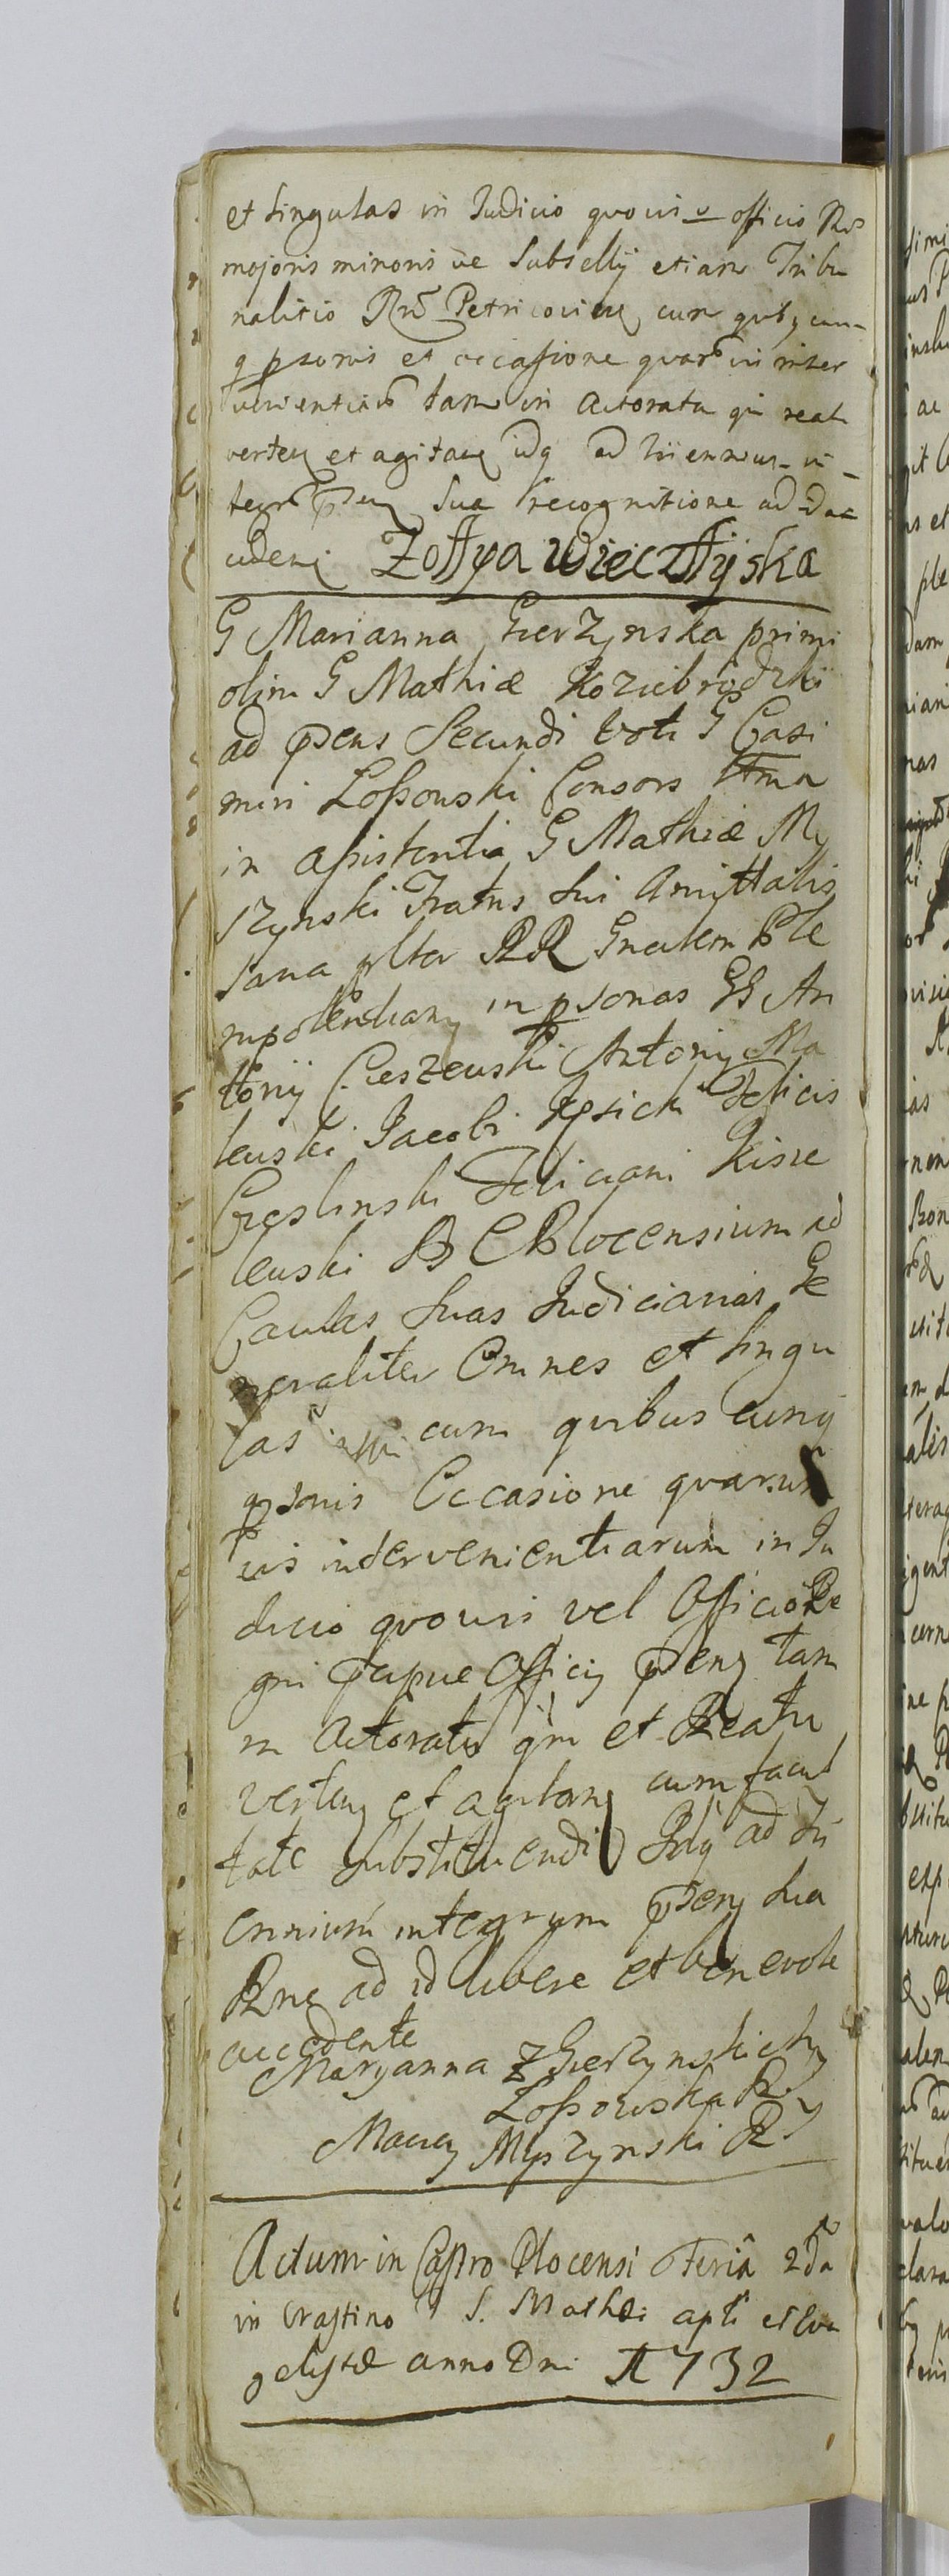 et singulas in Judicio quovis v officio Rni
majoris minoris ve Subsellij etiam Tribu
nalitio Rni Petricovien cum quibuscun
q psonis et occasione quarumvis inter
venientiarum tam in actoratu qm reatu
verten et agitan idq ad triennium in
tegr psen sua recognitione ad id ac
cedenti Zoffya Wieczffyska
G Marianna Gierzynska primi
olim G Mathiæ Koziebrodzki
ad psens Secundi voti G Casi
miri Lossowski Consors Ltma
in assistentia G Mathiæ My
szynski Fratris sui Amittalis
sana plter RR Gnalem Ple
nipotentiam in psonas GG An
tonij Cieszewski Antonij Ma
lewski Jacobi Kesicki Felicis
Cieslinski Feliciani Kisie
lewski B C Plocensium ad
Causas suas Judiciarias Ge
neraliter Omnes et singu
las cum quibus cunq
psonis Occasione quarum
vis intervenientiarum in Ju
dicio quovis vel Officio Re
gni Officij psens tam
in Actoratu qm et Reatu
verten et agitan cum facul
tate substituendi Idq ad Tri
ennium integrum psen sua
Rne ad id libere et benevole
accedente
Maryanna z Gierzynskich
Lossowska
Maciey Myszynski
Actum in Castro Plocensi Feria 2da
in Crastino S. Mathæi apli et Evan
gelistæ anno Dni 1732